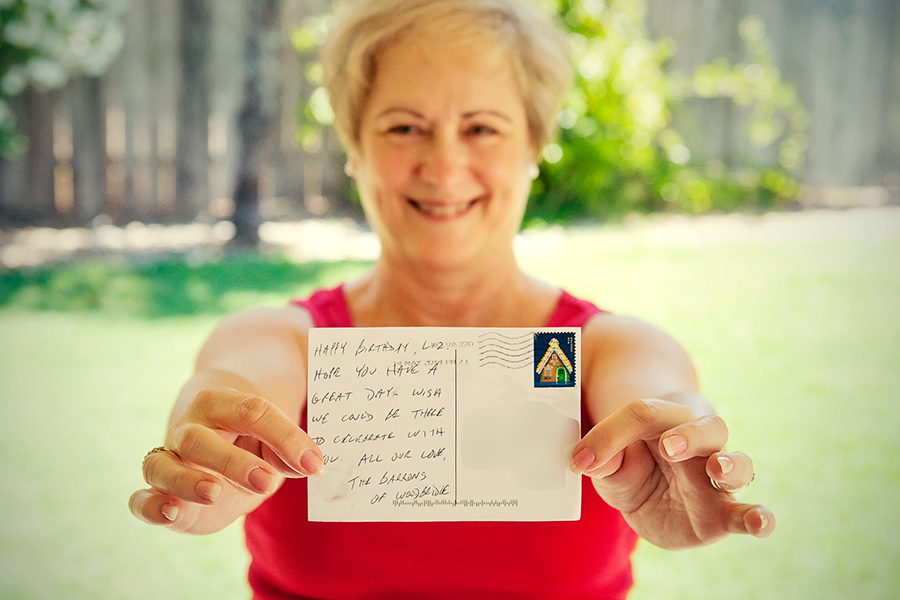 HAPPY BIRTHDAY, LIZ
HOPE YOU HAVE A
GREAT DAY. WISH
WE COULD BE THERE
TO CELEBRATE WITH
YOU. ALL OUR LOVE,
THE BARRONS
OF WOODBRIDGE